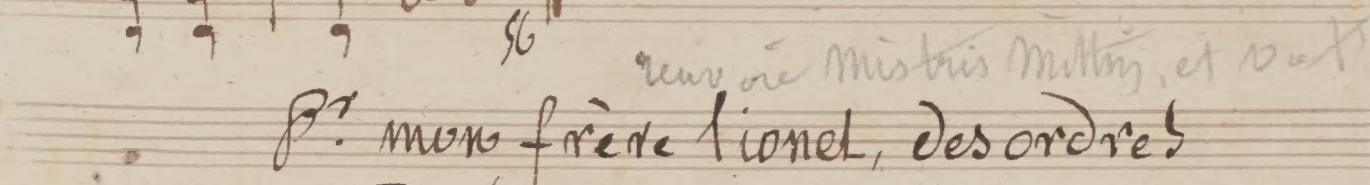 56
renvoie Mistris et
Pr. mon frère lionel, des ordres